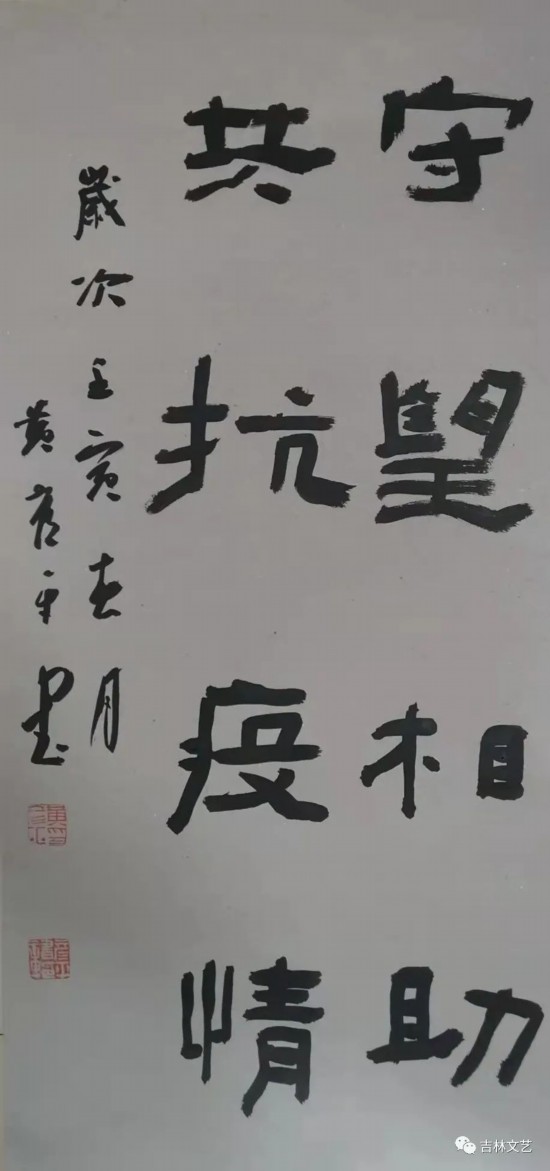 守望相助
共抗疫情
歲次壬寅春月
黄彦平書
吉林文艺